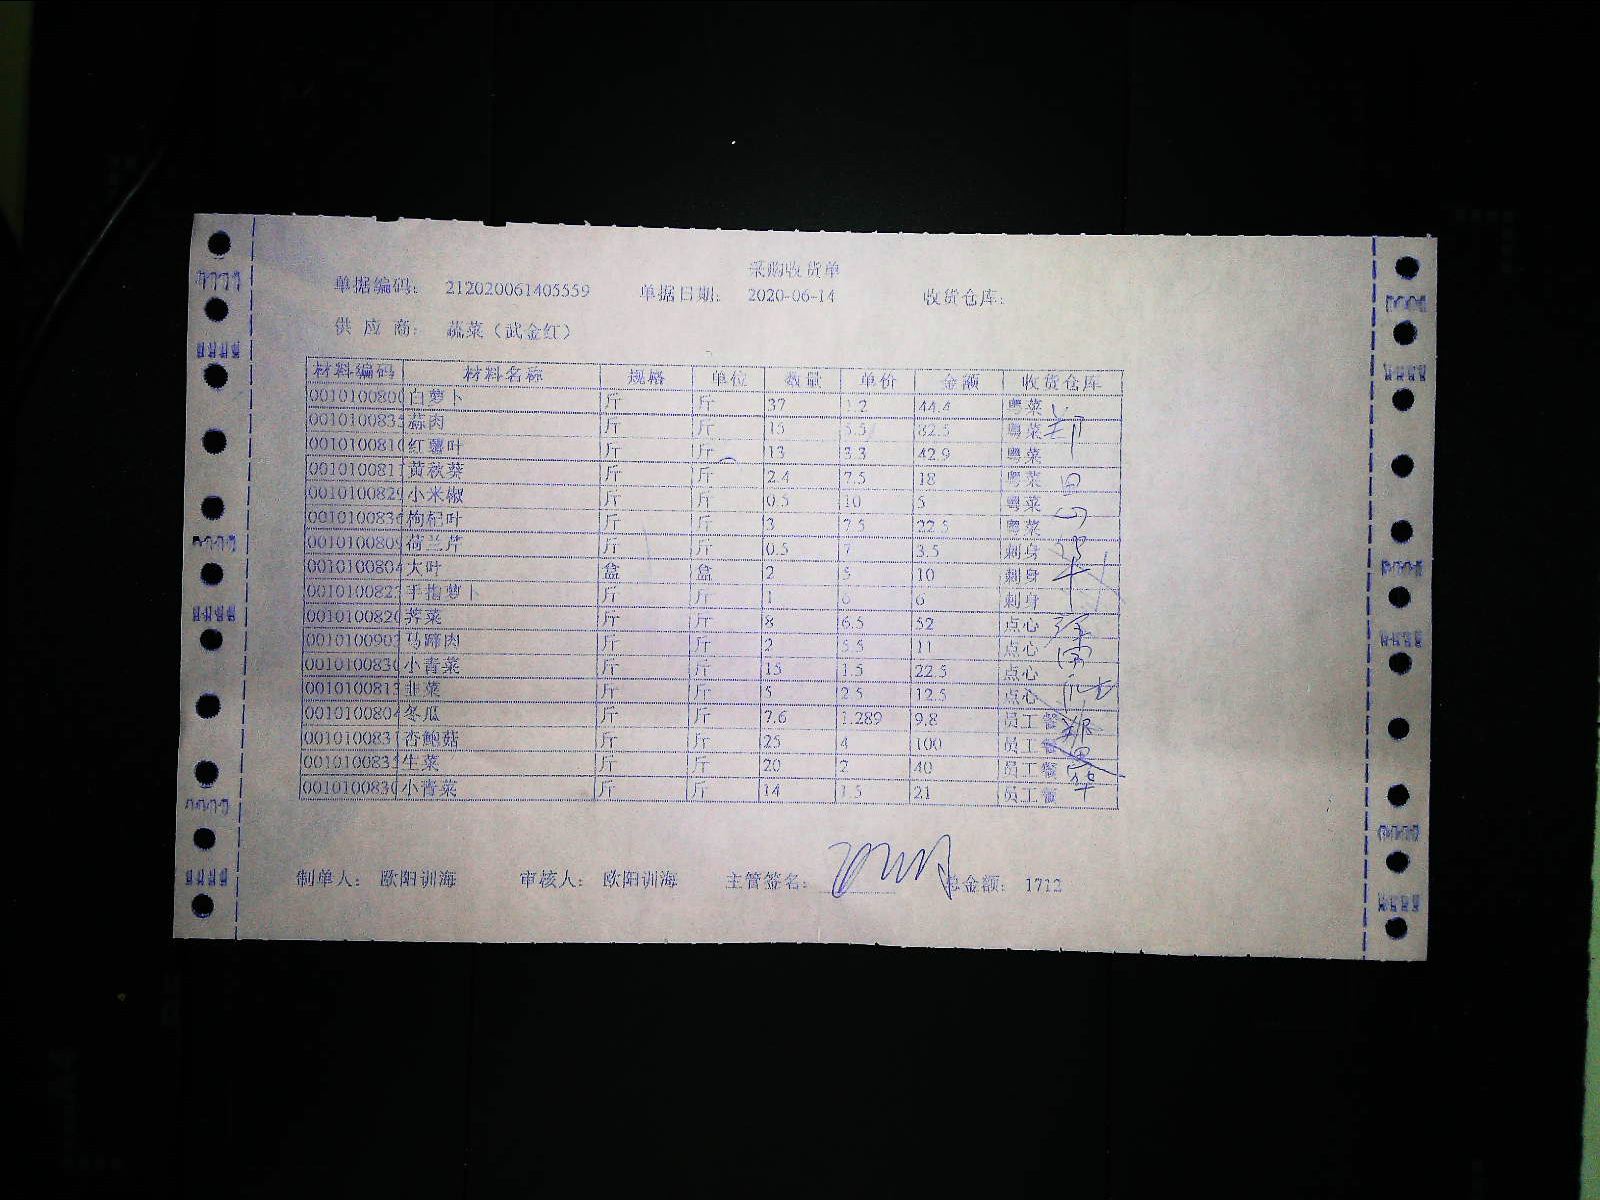 采购收货单
单据编码： 212020061405559 单据日期： 2020-06-14 收货仓库：
供 应 商： 蔬菜（武金红）
材料编码 材料名称 规格 单位 数量 单价 金额 收货仓库
0010100800 白萝卜 斤 斤 37 1.2 44.4 粤菜
001010083 蒜肉 斤 斤 15 5.5 82.5 粤菜
0010100810 红薯叶 斤 斤 13 3.3 42.9 粤菜
001010081 黄秋葵 斤 斤 2.4 7.5 18 粤菜
0010100829 小米椒 斤 斤 0.5 10 5 粤菜
001010083 枸杞叶 斤 斤 3 7.5 22.5 粤菜
0010100809 荷兰芹 斤 斤 0.5 7 3.5 刺身
0010100804 大叶 盒 盒 2 5 10 刺身
001010082 手指萝卜 斤 斤 1 6 6 刺身
0010100820 荠菜 斤 斤 8 6.5 52 点心
001010090 马蹄肉 斤 斤 2 5.5 11 点心
0010100830 小青菜 斤 斤 15 1.5 22.5 点心
0010100813 韭菜 斤 斤 5 2.5 12.5 点心
0010100804 冬瓜 斤 斤 7.6 1.289 9.8 员工餐
001010083 杏鲍菇 斤 斤 25 4 100 员工餐
001010083 生菜 斤 斤 20 2 40 员工餐
0010100830 小青菜 斤 斤 14 1.5 21 员工餐
制单人： 欧阳训海 审核人： 欧阳训海 主管签名： 总金额： 1712